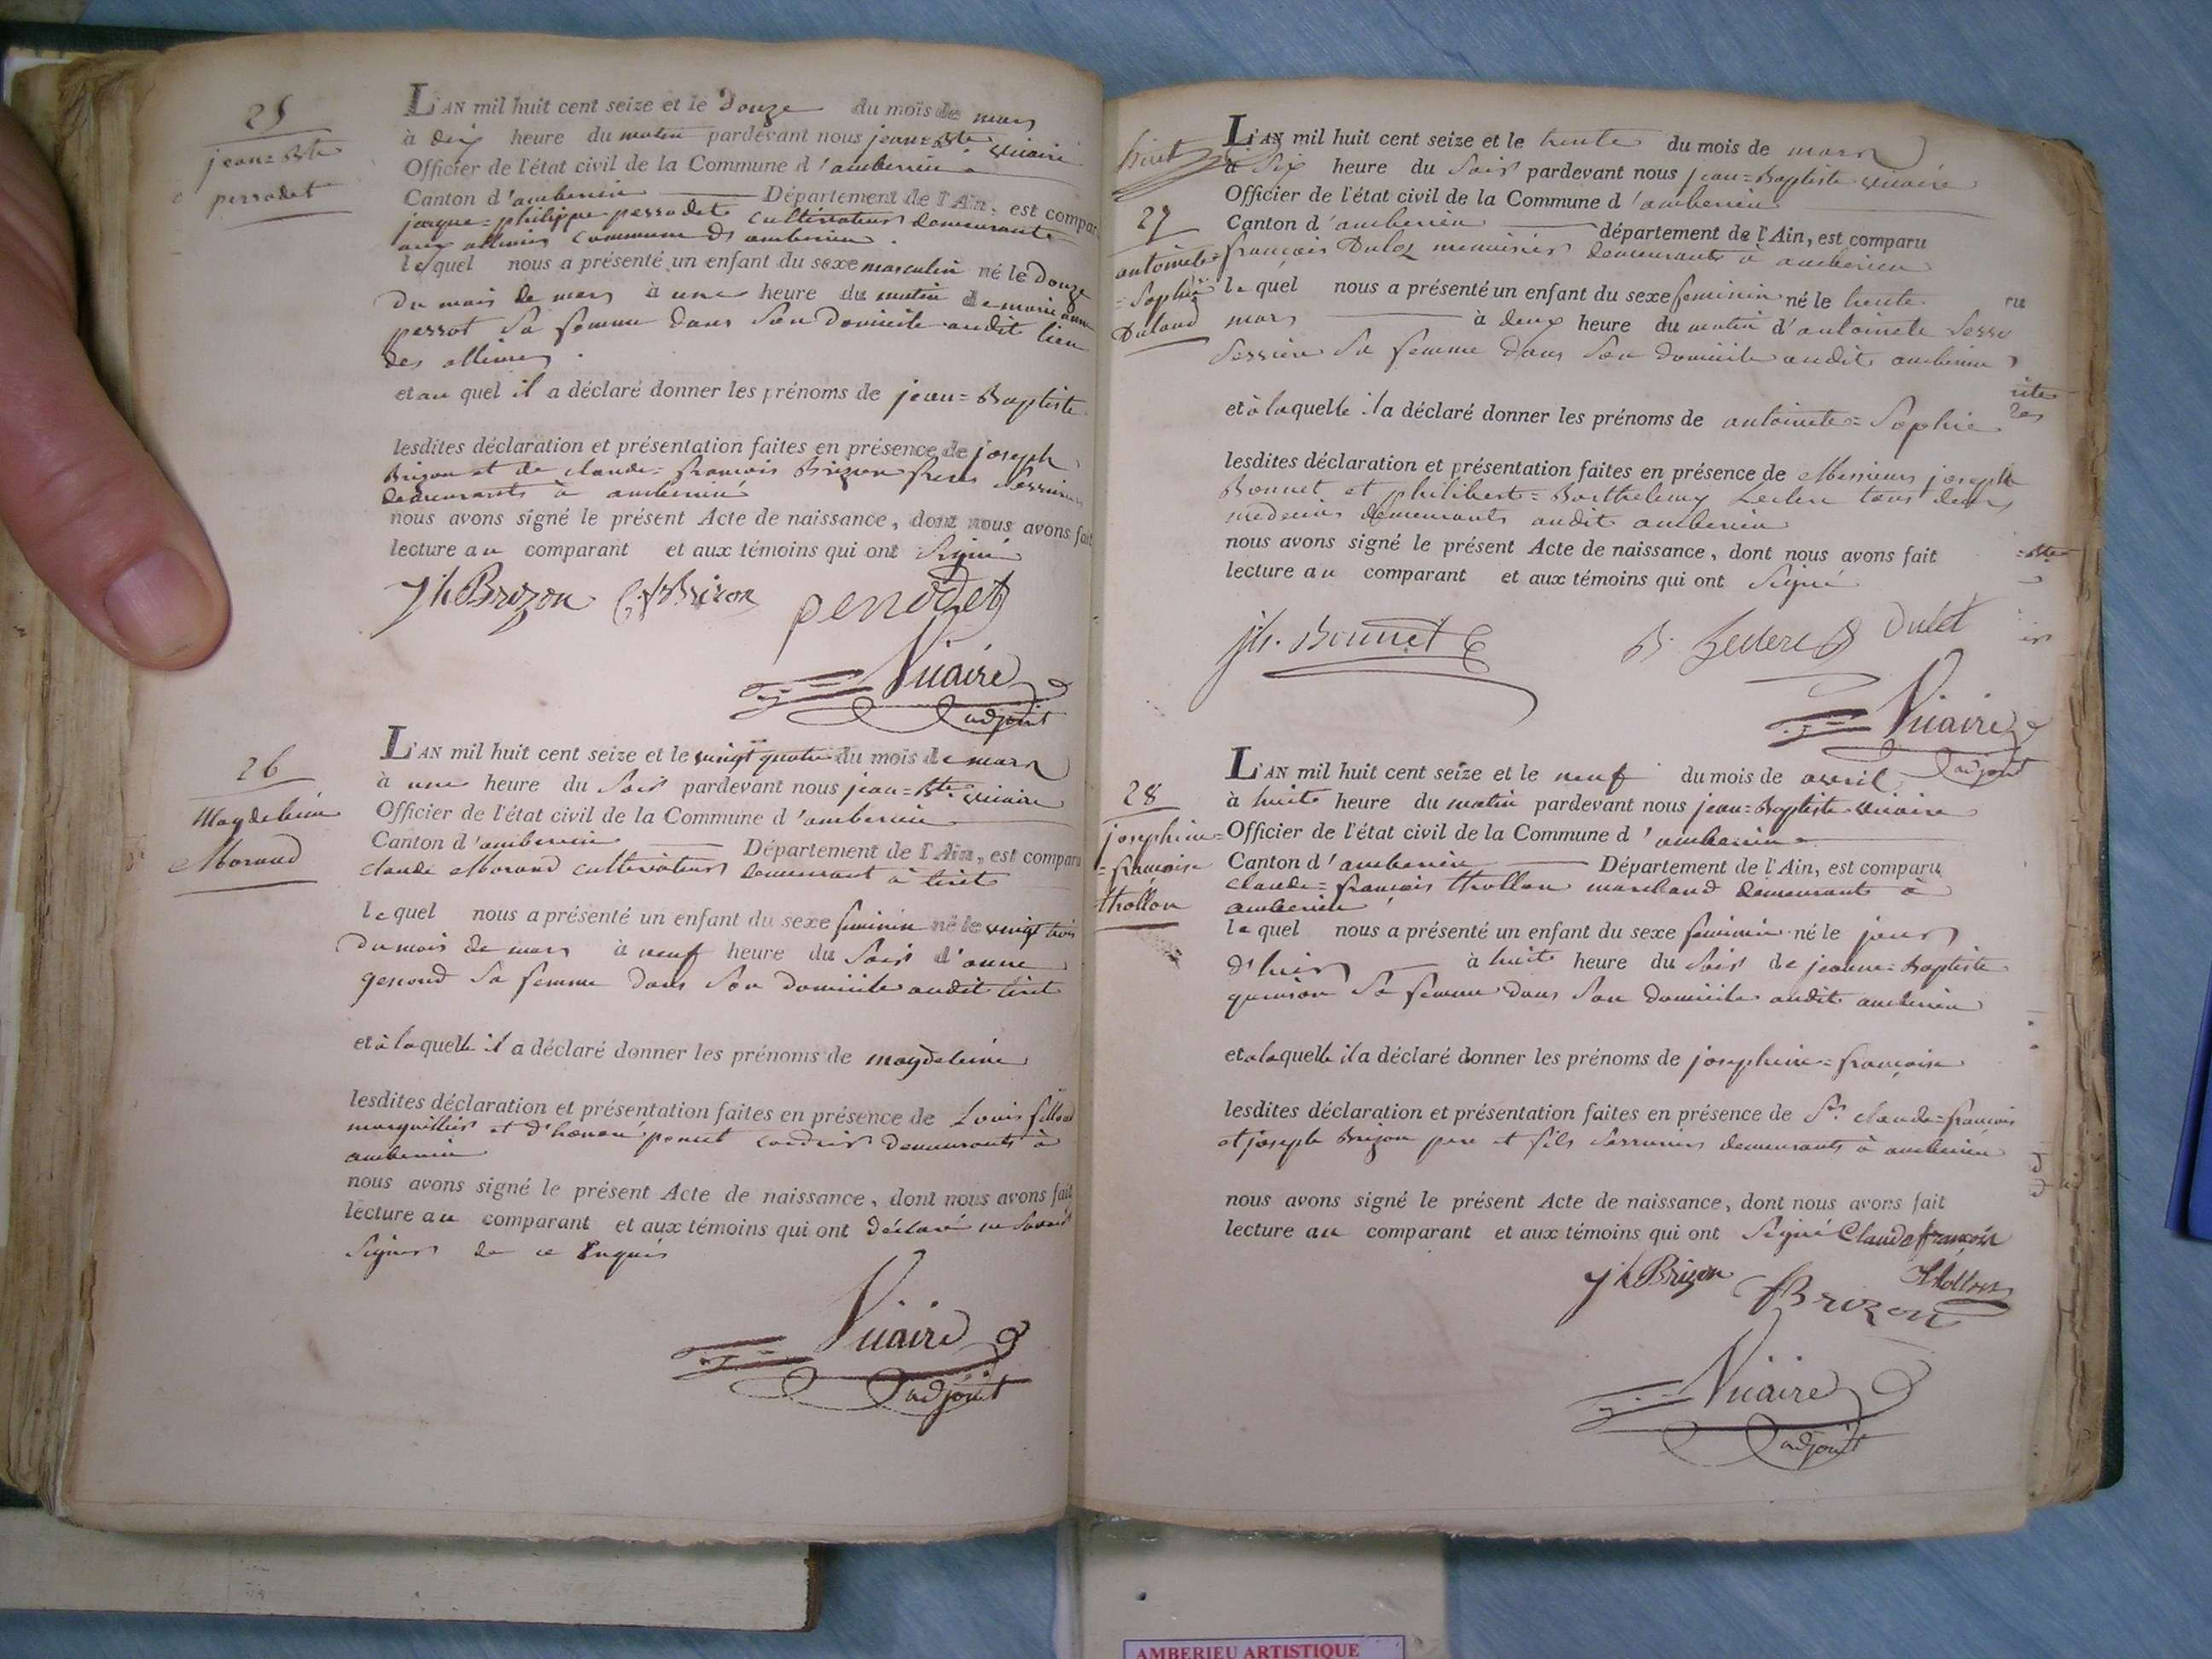 25
jean=Bte
perrodet
L'AN mil huit cent seize et le douze du mois de mars
à dix heure du matin pardevant nous jean=Bte vicaire
Officier de l'état civil de la Commune d'amberieu
Canton d'amberieu Département de l'Ain, est comparu
jacque=philippe perrodet cultivateur demeurant
aux allimes commune d'amberieu
lequel nous a présenté un enfant du sexe masculin né le douze
du mois de mars à une heure du matin de marie anne
perrot sa femme dans son domicile audit lieu
des allimes
et au quel il a déclaré donner les prénoms de jean=Baptiste
lesdites déclaration et présentation faites en présence de joseph
Brizon et de claude=françois Brizon freres serruriers
demeurants à amberieu
nous avons signé le présent Acte de naissance, dont nous avons fait
lecture au comparant et aux témoins qui ont signé
Jh Brizon Brizon perrodet
Vicaire
adjoint
26
Magdeleine
Morand
L'AN mil huit cent seize et le vingt quatre du mois de mars
à une heure du soir pardevant nous jean=Bte vicaire
Officier de l'état civil de la Commune d'amberieu
Canton d'amberieu Département de l'Ain, est comparu
claude Morand cultivateur demeurant à tiret
lequel nous a présenté un enfant du sexe feminin né le vingt trois
du mois de mars à neuf heure du soir d'anne
genoud sa femme dans son domicile audit tiret
et à laquelle il a déclaré donner les prénoms de magdeleine
lesdites déclaration et présentation faites en présence de Louis
marguillier et d'honoré poncet cordier demeurants à
amberieu
nous avons signé le présent Acte de naissance, dont nous avons fait
lecture au comparant et aux témoins qui ont déclaré ne savoir
signer de ce enquis
Vicaire
adjoint
tiret
27
antoinete=
=Sophie
L'AN mil huit cent seize et le trente du mois de mars
à six heure du soir pardevant nous jean=Baptiste vicaire
Officier de l'état civil de la Commune d'amberieu
Canton d'amberieu département de l'Ain, est comparu
françois menuisier demeurant à amberieu
lequel nous a présenté un enfant du sexe feminin né le trente
mars à deux heure du matin d'antoinete
sa femme dans son domicile audit amberieu
et à laquelle il a déclaré donner les prénoms de antoinete=Sophie
lesdites déclaration et présentation faites en présence de Messieurs joseph
Bonnet et philibert=Barthelemy Leclerc tous deux
medecins demeurants audit amberieu
nous avons signé le présent Acte de naissance, dont nous avons fait
lecture au comparant et aux témoins qui ont signé
jh. Bonnet B. Leclerc
Vicaire
adjoint
28
josephine=
=françoise
thollon
L'AN mil huit cent seize et le neuf du mois de avril
à huit heure du matin pardevant nous jean=Baptiste vicaire
Officier de l'état civil de la Commune d'amberieu
Canton d'amberieu Département de l'Ain, est comparu
claude=françois thollon marchand demeurant à
amberieu
lequel nous a présenté un enfant du sexe feminin né le jour
d'hier à huit heure du soir de jeanne=Baptiste
sa femme dans son domicile audit amberieu
et a laquelle il a déclaré donner les prénoms de josephine=françoise
lesdites déclaration et présentation faites en présence de Sr. claude=françois
et joseph Brizon pere et fils serruriers demeurants à amberieu
nous avons signé le présent Acte de naissance, dont nous avons fait
lecture au comparant et aux témoins qui ont signé Claude françois
Thollon
Jh Brizon Brizon
Vicaire
adjoint
AMBERIEU ARTISTIQUE